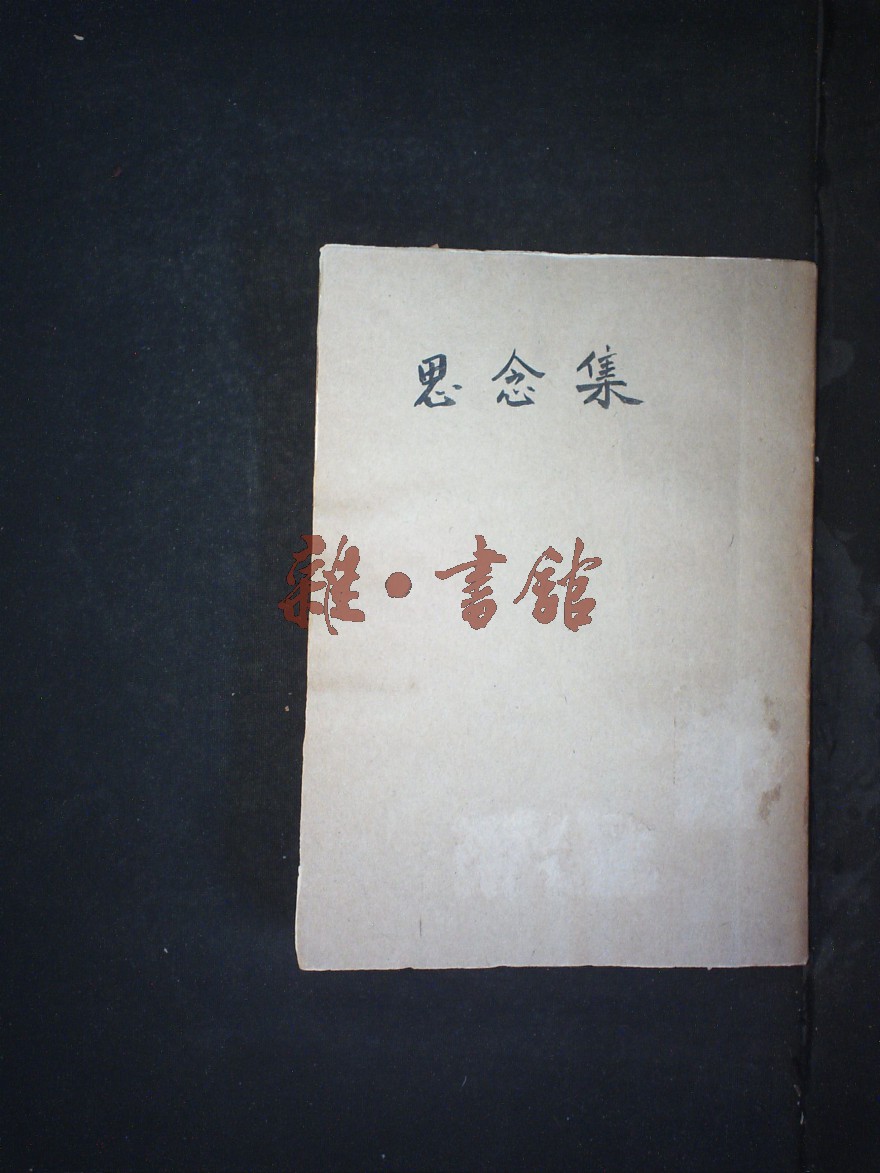 思念集
雜·書館